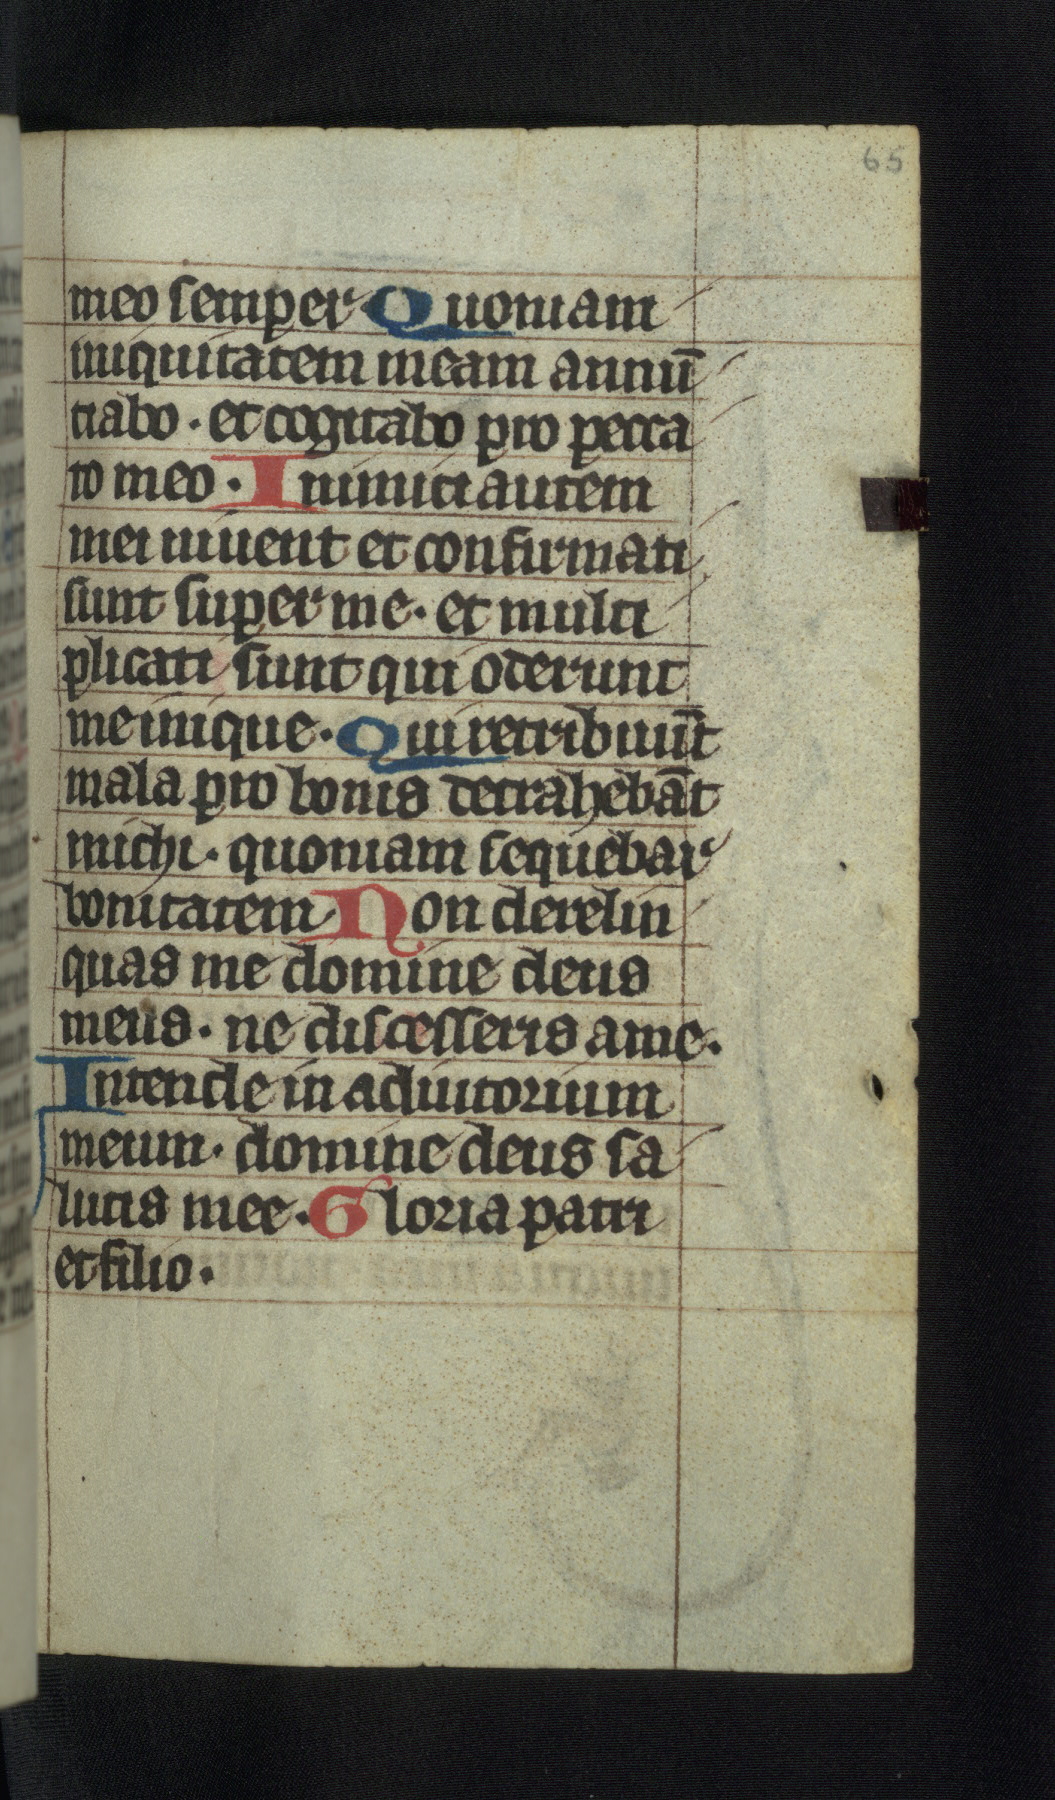 65
meo semper Quoniam
iniquitatem meam annū
tiabo · et cogitabo pro pecca
to meo · Inimici autem
mei uiuent et confirmati
sunt super me · et multi
plicati sunt qui oderunt
me inique · Qui retribuūt
mala pro bonis detrahebāt
michi · quoniam sequebar
bonitatem Non derelin
quas me domine deus
meus · ne discesseris a me ·
Intende in adiutorium
meum · domine deus sa
lutis mee · Gloria patri
et filio ·